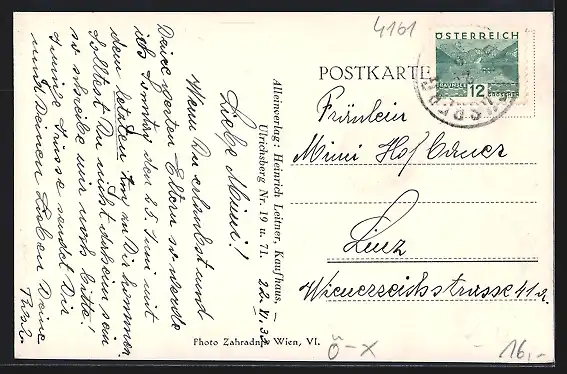 4161
ÖSTERREICH
12
GROSCHEN
POSTKARTE
Fräulein
Mimi Hofbauer
Linz
Wienerreichsstrasse 41a.
Alleinverlag: Heinrich Leitner, Kaufhaus,
Ulrichsberg Nr. 19 u. 71.
22. VI. 32
Liebe Mimi!
Wenn Du erlaubst und
Deine werten Eltern so werde
ich Sonntag den 25. Juni mit
dem letzten Zug zu Dir kommen.
Solltest Du nicht daheim sein
so schreibe mir noch bitte!
Innige Grüsse sendet Dir
und Deinen Lieben Deine
Photo Zahradnik Wien, VI.
Ö-X
16,-